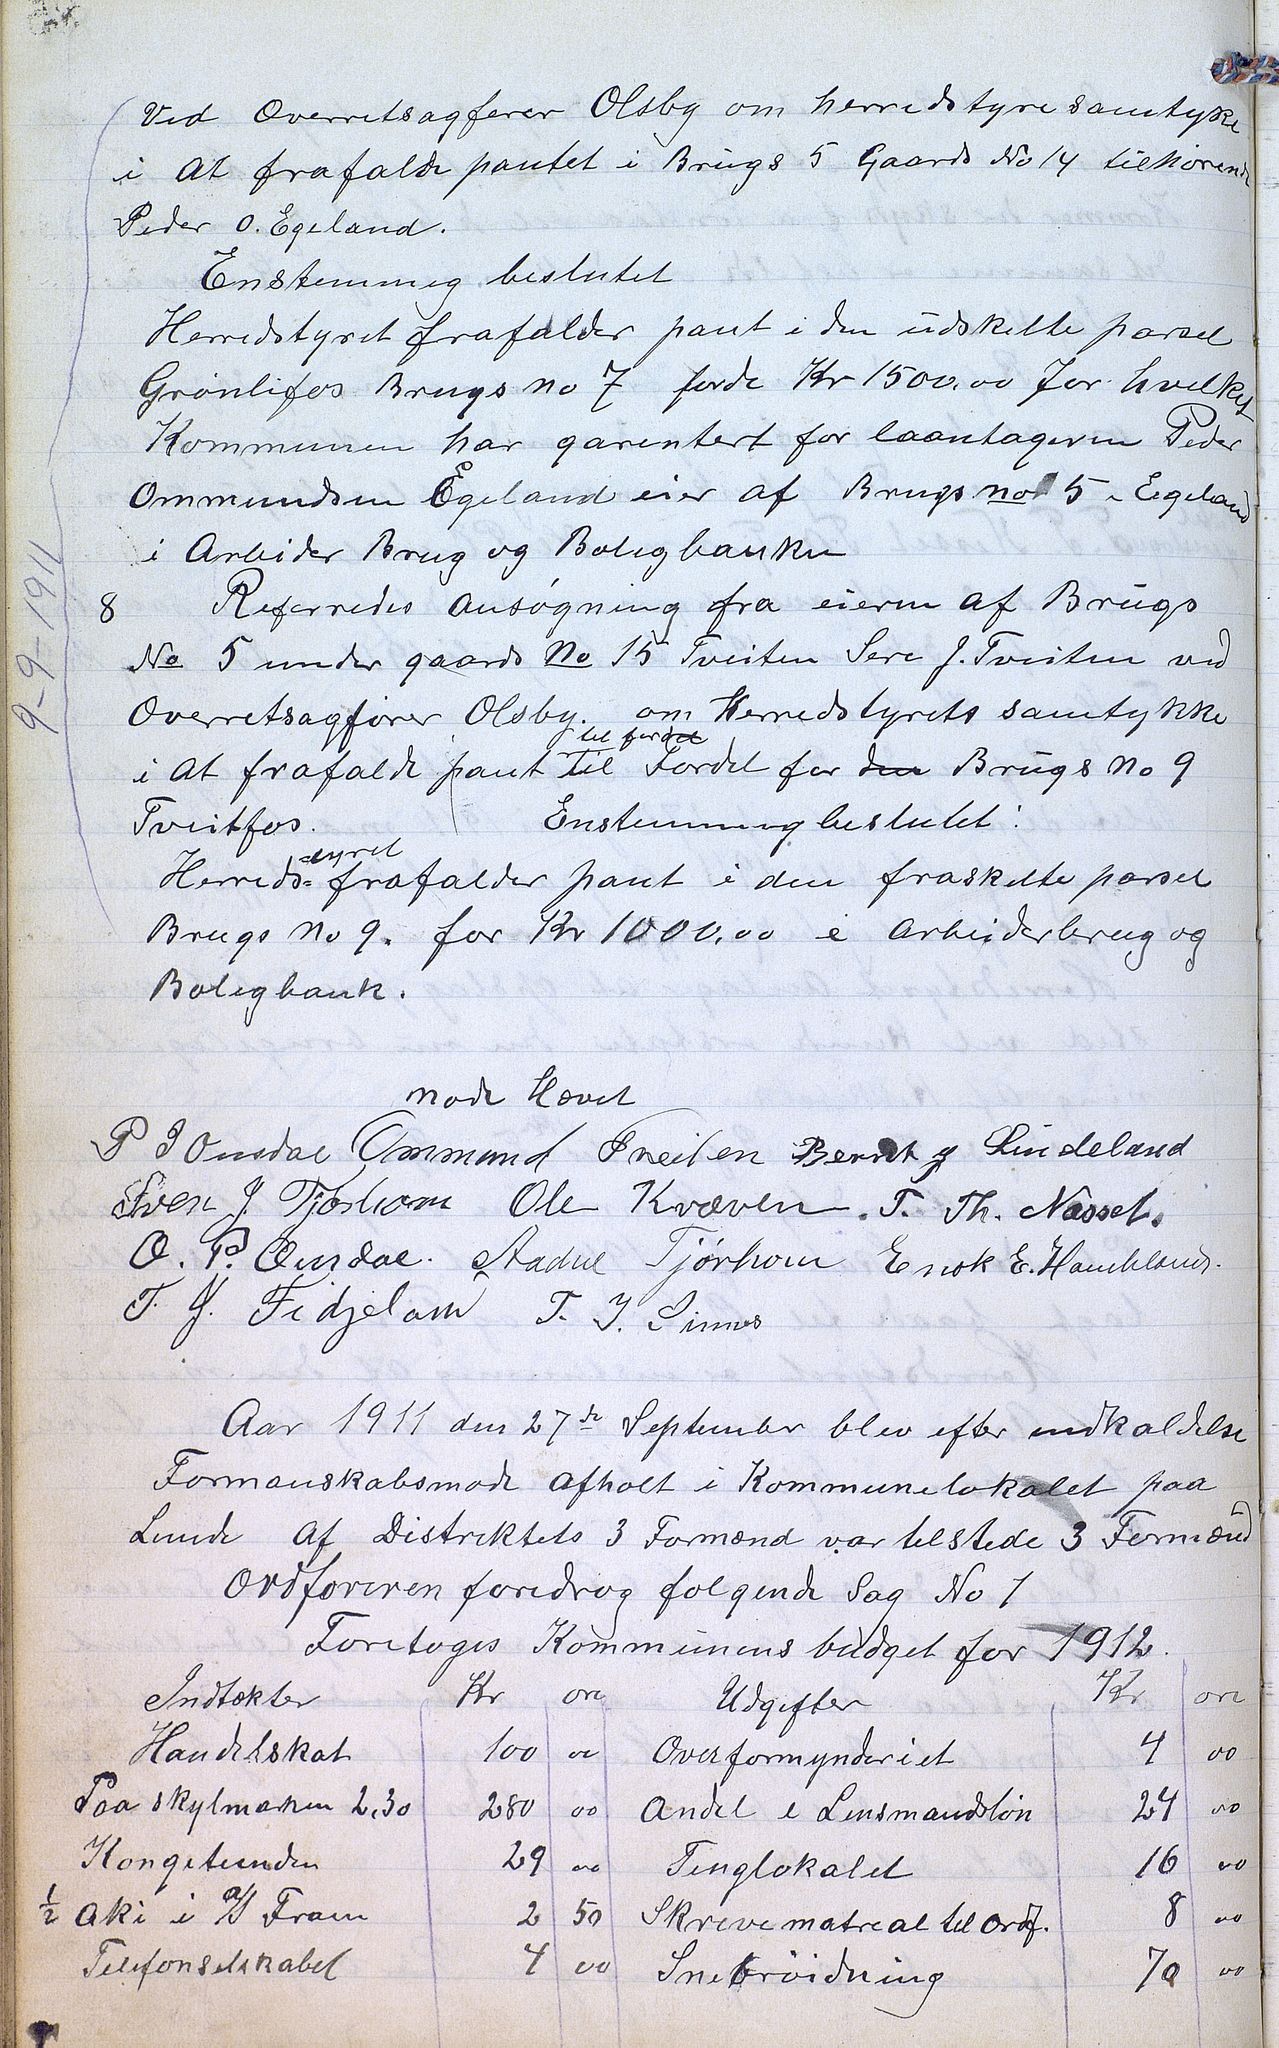 Ved Overretsagfører Olsby om herredstyre samtyke
i At frafalde pantet i Brugs 5 Gaards No 14 tilhørende
Peder O. Egeland.
Enstemmig beslutet
Herredstyret frafalder pant i den udskelte parsel
Grønlifos Brugs No 7 forde Kr 1500.00 for hvelket
Kommunen har garentert for laantageren Peder
Ommundsen Egeland eier af Brugs no 5 i Eegeland
i Arbider Brug og Boligbanken
8 Referredes Ansøgning fra eieren af Brugs
No 5 under gaards No 15 Tveiten Sere J. Tveiten ved
Overretsagfører Olsby. om Herredstyrets samtykke
til fordel
i At frafalde pant til Fordel for den Brugs No 9
Tveitfos. Enstemmig beslutet:
styret
Herreds= frafalder pant i den fraskelte parsel
Brugs No 9. for Kr 1000.00 i Arbeiderbrug og
Boligbank.
9-9-1911
Møde Hævet
P J Ousdal Ommund Tveiten Berret J Lindeland
Sven J Tjørhom Ole Kvæven. T. Th. Næsset.
O. P. Ousdal. Aadne Tjørhom Enok E. Haughland.
T. J. Fidjeland T. J. Sinnes
Aar 1911 den 27de September blev efter indkaldelse
Formanskabsmøde afholt i Kommunelokalet paa
Lunde Af Distriktets 3 Formænd var tilstede 3 Formænd
Ordføreren foredrog følgende Sag No 1
Foretoges Kommunens budget for 1912.
Indtekter Kr øre Udgifter Kr øre
Handelskat 100 00 Overformynderiet 4 00
Paa skylmarken 2,30 280 00 Andel i Lensmandsløn 24 00
Kongetienden 29 00 Tinglokalet 16 00
1/2 Aki i A/S Fram 2 50 Skrivematreal til Ordf. 8 00
Telefonselskabet 4 00 Snebrøidning 70 00